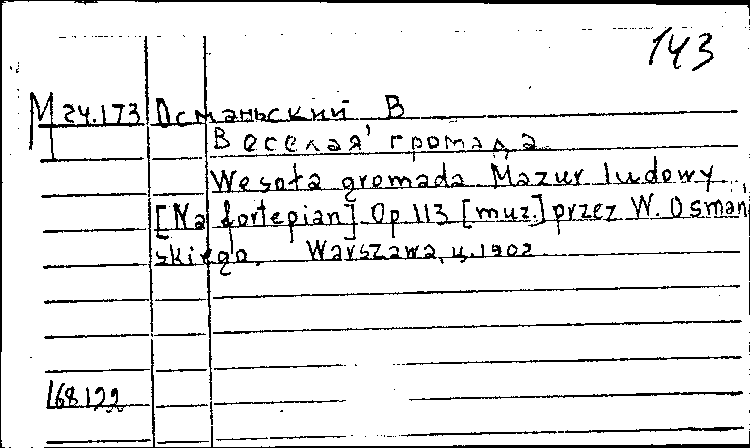 143
М 24.173 Османьский В
Веселая громада
Wesoła gromada. Mazur ludowy
[Na fortepian]. Op. 113 [muz.] przez W. Osmań
skiego. Warszawa, ц. 1902
168122